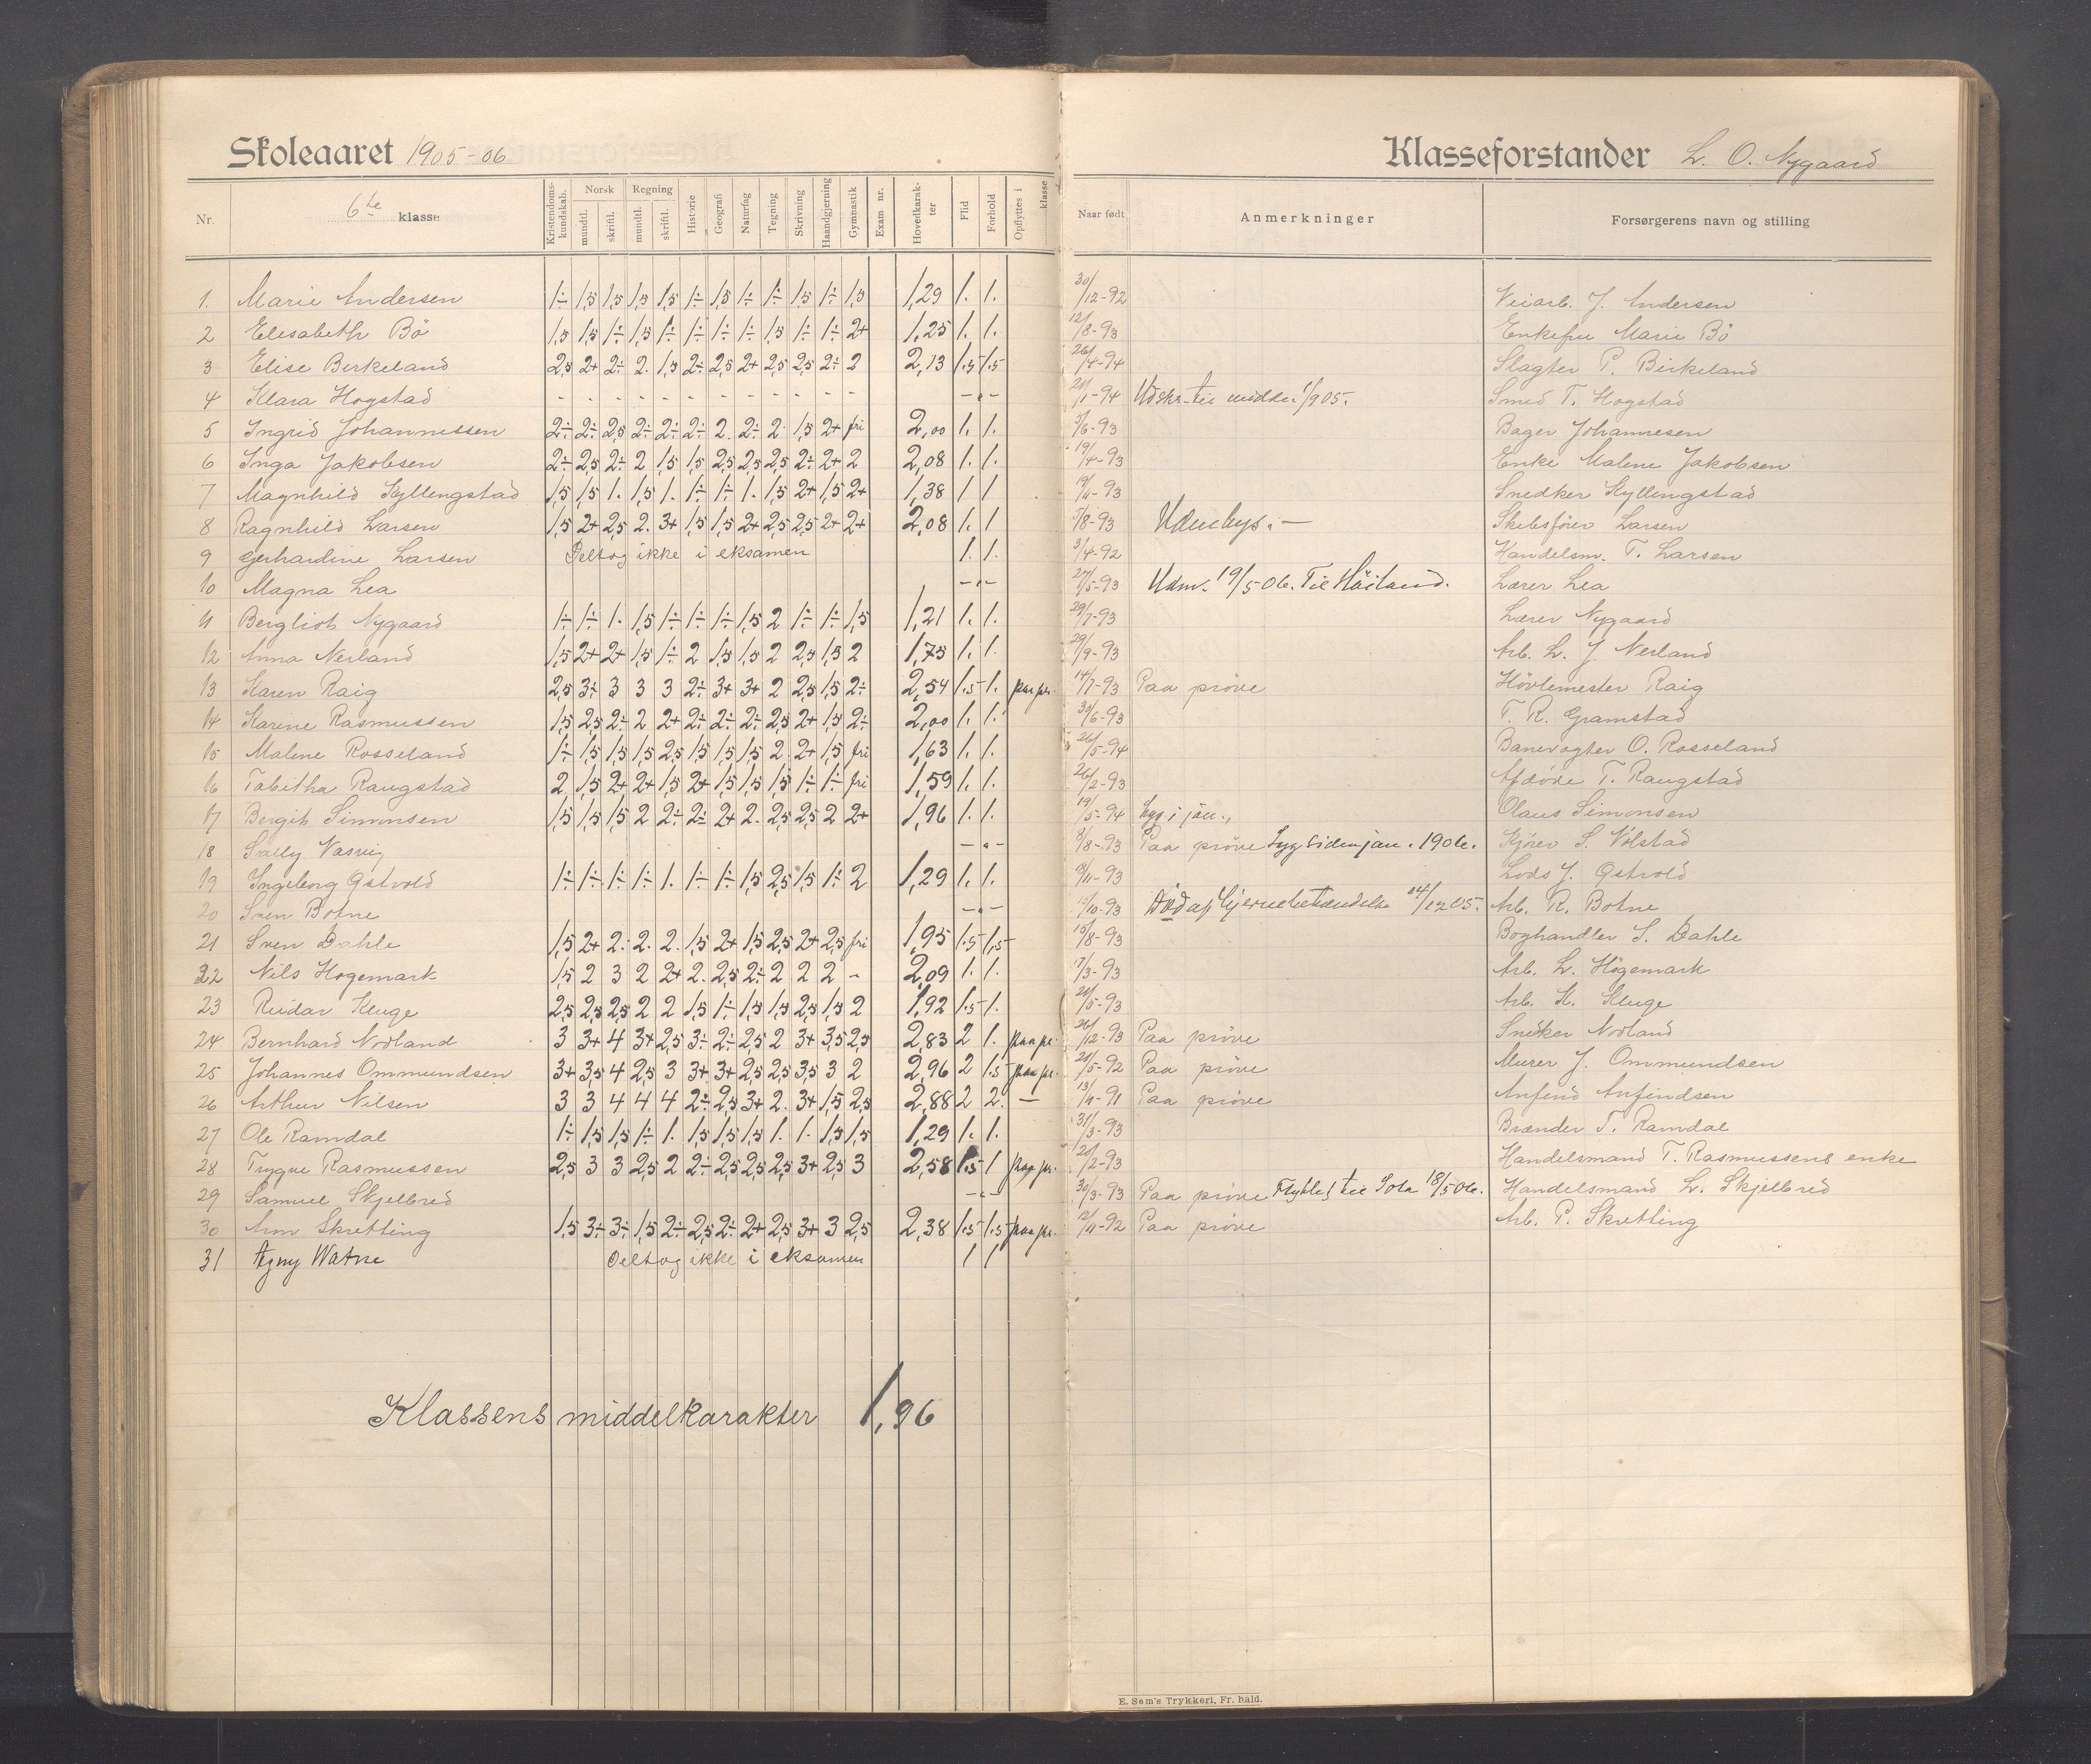 Skoleaaret 1905-06
Klasseforstander L. O. Nygaard
Nr.
6te klasse
Kristendoms-kundskab.
Norsk
mundtl.
skriftl.
Regning
mundtl.
skriftl.
Historie
Geografi
Naturfag
Tegning
Skrivning
Haandgjerning
Gymnastik
Exam nr.
Hovedkarak-ter
Flid
Forhold
Opflyttes i klasse
Naar født
Anmerkninger
Forsørgerens navn og stilling
1. Marie Andersen 1÷ 1,5 1,5 1,5 1,5 1÷ 1,5 1÷ 1÷ 1,5 1÷ 1,5 1,29 1. 1. 30/12-92 Veiarb. J. Andersen
2 Elisabeth Bö 1,5 1,5 1÷ 1,5 1÷ 1÷ 1÷ 1÷ 1,5 1÷ 1÷ 2+ 1,25 1. 1. 12/8-93 Enkefru Marie Bö
3 Elise Birkeland 2,5 2+ 2÷ 2. 1,5 2÷ 2,5 2+ 2,5 2,5 2÷ 2 2,13 1.5 1.5 26/4-94 Slagter P. Birkeland
4 Klara Hogstad - - - - - - - - - - - - -"- 1-94 Smed T. Hogstad
5 Ingrid Johannessen 2÷ 2÷ 2,5 2÷ 2÷ 2÷ 2. 2÷ 2. 1,5 2+ fri 2,00 1. 1. 5/6-93 Bager Johannesen
6 Inga Jakobsen 2÷ 2,5 2÷ 2 1,5 1,5 2,5 2,5 2,5 2÷ 2+ 2 2,08 1. 1. 19/4-93 Enke Malene Jakobsen
7 Magnhild Kyllengstad 1,5 1,5 1. 1,5 1. 1÷ 1÷ 1. 1,5 2+ 1,5 2+ 1,38 1 1 Snedker Kyllingstad
8 Ragnhild Larsen 1,5 2+ 2,5 2. 3+ 1,5 1,5 2+ 2,5 2,5 2+ 2+ 2,08 1. 1 /8-93 Skibsfører Larsen
9 Gerhardine Larsen Deltog ikke i eksamen 1. 1. 3/4-92 Handelsm. T. Larsen
10 Magna Lea -"- 27/5-93 Udm. 19/5-06. Til Höiland. Lærer Lea
11 Bergliot Nygaard 1÷ 1÷ 1. 1,5 1÷ 1÷ 1÷ 1,5 2 1÷ 1÷ 1,5 1,21 1. 1. 29/7-93 Lærer Nygaard
12 Anna Nerland 1,5 2+ 2+ 1,5 1÷ 2 1,5 1,5 2 2,5 1,5 2 1,75 1. 1. 29/9-93 Arb. L. J. Nerland
13 Karen Raig 2,5 3÷ 3 3 3 2÷ 3+ 3+ 2 2,5 1,5 2÷ 2,54 1.5 1. paa pr. 14/7-93 Paa pröve Hövlemester Raig
14 Karine Rasmussen 1,5 2,5 2÷ 2 2+ 2÷ 2÷ 2÷ 2,5 2+ 1,5 2÷ 2,00 1. 1. 30/6-93 T. R. Gramstad
15 Malene Rosseland 1÷ 1,5 1,5 1,5 2,5 1,5 1,5 1,5 2 2+ 1,5 fri 1,63 1. 1. /5-94 Banevogter O. Rosseland
16 Tabitha Raugstad 2 1,5 2+ 2+ 1,5 2+ 1,5 1,5 1,5 1÷ 1÷ fri 1,59 1. 1. 26/2-93 Afdöde T. Raugstad
17 Bergit Simonsen 1,5 1,5 1,5 2 2÷ 2÷ 2+ 2. 2,5 2,5 2 2+ 1,96 1. 1. 19/5-94 Syg i jan., Olaus Simonsen
18 Sally Vasvig -"- 8/8-93 Paa pröve Syg siden jan. 1906. Kjörer S. Völstad
19 Ingeborg Østvold 1÷ 1÷ 1÷ 1÷ 1. 1÷ 1÷ 1,5 2,5 1,5 1÷ 2 1,29 1. 1. /11-93 Lods J. Østvold
20 Sven Botne -"- /10-93 Död af hjernebetændelse /12 05. Arb. R. Botne
21 Sven Dahle 1,5 2+ 2. 2. 2. 1,5 2+ 1,5 2,5 2+ 2,5 fri 1,95 1.5 1,5 15/8-93 Boghandler S. Dahle
22 Nils Hogemark 1,5 2 3 2 2+ 2. 2,5 2÷ 2 2 2 - 2,09 1. 1. 7/3-93 Arb. L. Högemark
23 Reidar Kluge 2,5 2,5 2,5 2 2 1,5 1÷ 1,5 1,5 2,5 1,5 2 1,92 1.5 1. /5-93 Arb. K. Kluge
24 Bernhard Nodland 3 3+ 4 3+ 2,5 3÷ 2÷ 2,5 2 3+ 3,5 2,5 2,83 2 1. paa pr. 26/12-93 Paa pröve Snedker Nodland
25 Johannes Ommundsen 3+ 3,5 4 2,5 3 3+ 3+ 2,5 2,5 3,5 3 2 2,96 2 1.5 paa pr. /5-92 Paa pröve Murer J. Ommundsen
26 Arthur Nilsen 3 3 4 4 4 2÷ 2,5 3+ 2. 3+ 1,5 2,5 2,88 2 2. — 13/4-91 Paa pröve Anfind Anfindsen
27 Ole Ramdal 1÷ 1,5 1,5 1÷ 1. 1,5 1,5 1,5 1. 1. 1,5 1,5 1,29 1. 1. 31/3-93 Brænder T. Ramdal
28 Trygve Rasmussen 2,5 3 3 2,5 2 2÷ 2,5 2,5 2,5 3+ 2,5 3 2,58 1.5 1 paa pr. /2-93 Handelsmand T. Rasmussens enke
29 Samuel Skjelbred -"- 30/3-93 Paa pröve Flyttet til Sola 18/5 06. Handelsmand L. Skjelbred
30 Arn Skretting 1,5 3÷ 3÷ 1,5 2÷ 2,5 2÷ 2+ 2,5 3+ 3 2,5 2,38 1.5 1.5 paa pr. 12/11-92 Paa pröve Arb. P. Skretting
31 Agny Watne Deltog ikke i eksamen 1 1
Klassens middelkarakter 1,96
E. Sem's Trykkeri, Fr. hald.